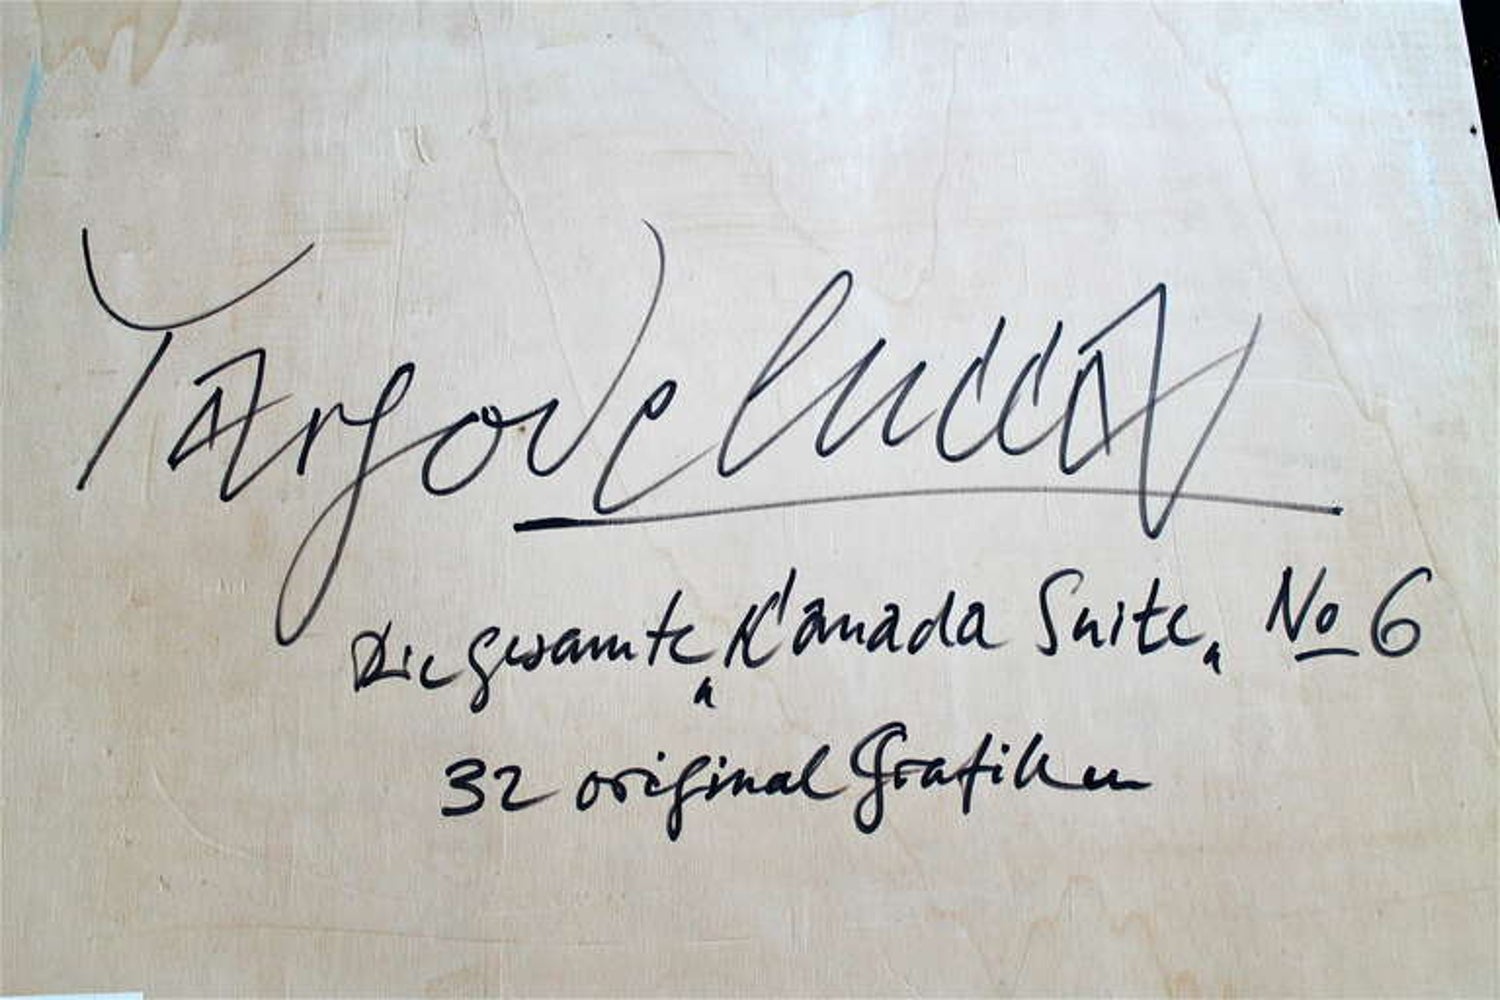 YArgo de lucca
Die gesamte "Kanada Suite" No 6
32 original Grafiken